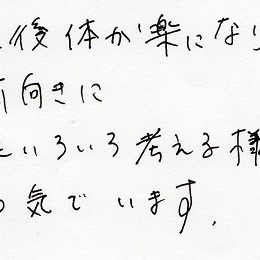 後体が楽になり
前向きに
いろいろ考える様
気でいます。